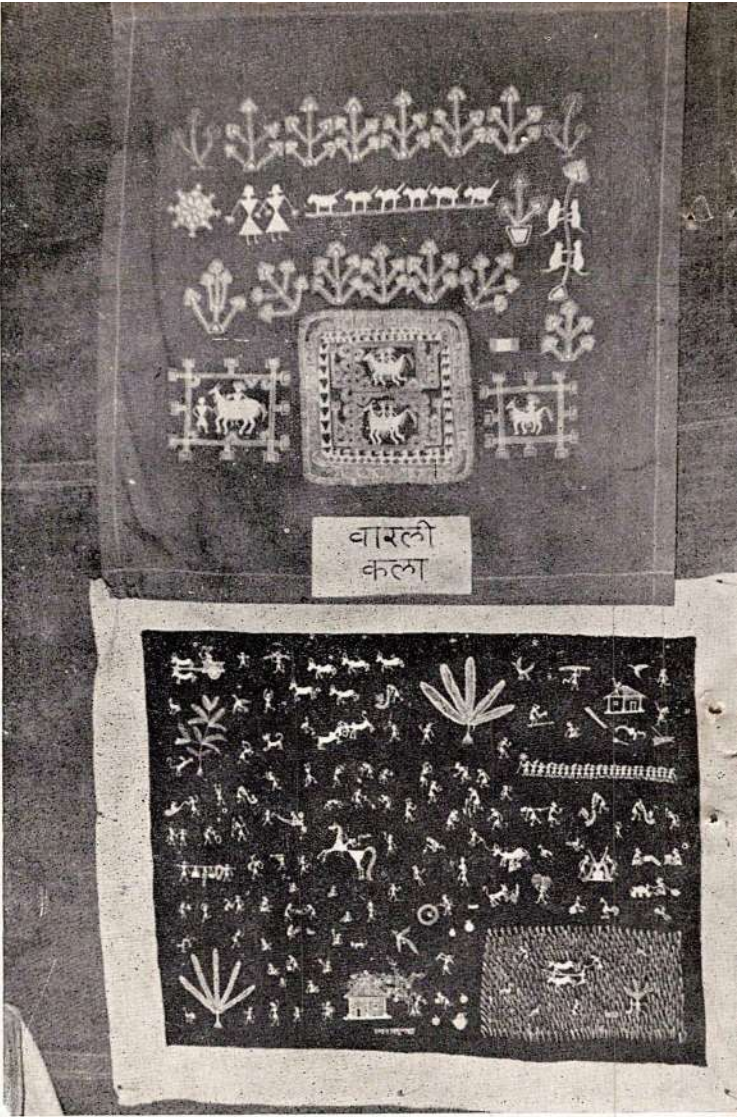 वारली
कला